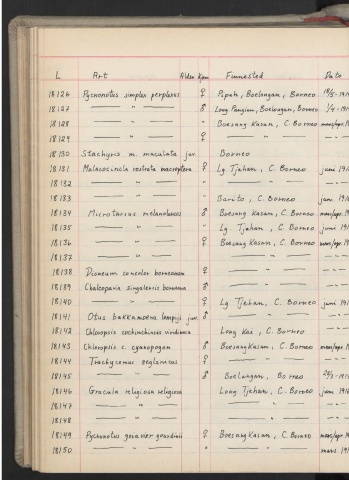 L Art Alder Kjønn Finnested Dato
18126 Pycnonotus simplex perplexus ♀ Pepah, Boelongan, Borneo 18/5-191
18127 — " — ♂ Long Pangian, Boelongan, Borneo 1/4-191
18128 — " — " Boesang Kasan, C. Borneo mars/apr.
18129 — " — ♀ — " —
18130 Stachyris m. maculata juv. Borneo
18131 Malacocincla rostrata macroptera ♀ Lg Tjehan, C. Borneo juni 191
18132 — " — " — " —
18133 — " — Barito, C. Borneo juni
18134 Microtarsus melanoleucos ♂ Boesang Kasan, C. Borneo mars/apr.
18135 — " — " Lg Tjehan, C. Borneo juni
18136 — " — ♀ Boesang Kasan, C. Borneo mars/apr.
18137 — " — — " —
18138 Dicaeum concolor borneanum ♀ — " —
18139 Chalcoparia singalensis borneana ♂ — " —
18140 — " — ♀ Lg Tjehan, C. Borneo juni
18141 Otus bakkamoena lempiji juv. ♂ — " —
18142 Chloropsis cochinchinensis viridinucha Long Kai, C. Borneo
18143 Chloropsis c. cyanopogon ♂ Boesang Kasan, C. Borneo mars/apr.
18144 Trachycomus zeylanicus ♀ — " —
18145 — " — ♂ Boelongan, Borneo
18146 Gracula religiosa religiosa Long Tjehan, C. Borneo juni 191
18147 — " — — " —
18148 — " — — " —
18149 Pycnonotus goiavier gourdinii ♀ Boesang Kasan, C. Borneo mars/apr.
18150 — " — " — " — mars 191